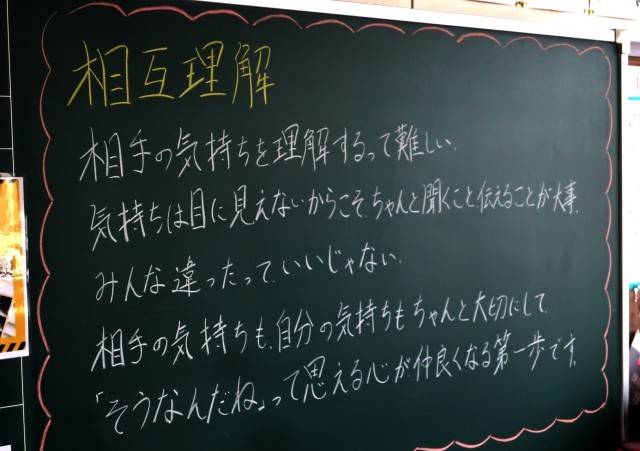 相互理解
相手の気持ちを理解するって難しい.
気持ちは目に見えないからこそ、ちゃんと聞くこと、伝えることが大事.
みんな違ったって、いいじゃない.
相手の気持ちも、自分の気持ちもちゃんと大切にして
「そうなんだね」って思える心が仲良くなる第一歩です.